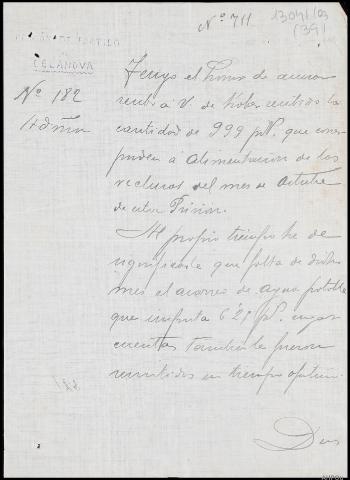 Nº 711
13041/03
(39)
CELANOVA
Nº 182
Admón
Tengo el honor de acusar
recibo á V. de haber recibido la
cantidad de 999 pts. que corres
ponden á alimentación de los
reclusos del mes de Octubre
de esta Prisión.
Al propio tiempo he de
significarle que falta de dicho
mes el acarreo de agua potable
que importa 6'25 pts. cuyas
cuentas también le fueron
remitidas en tiempo oportuno.
Dios